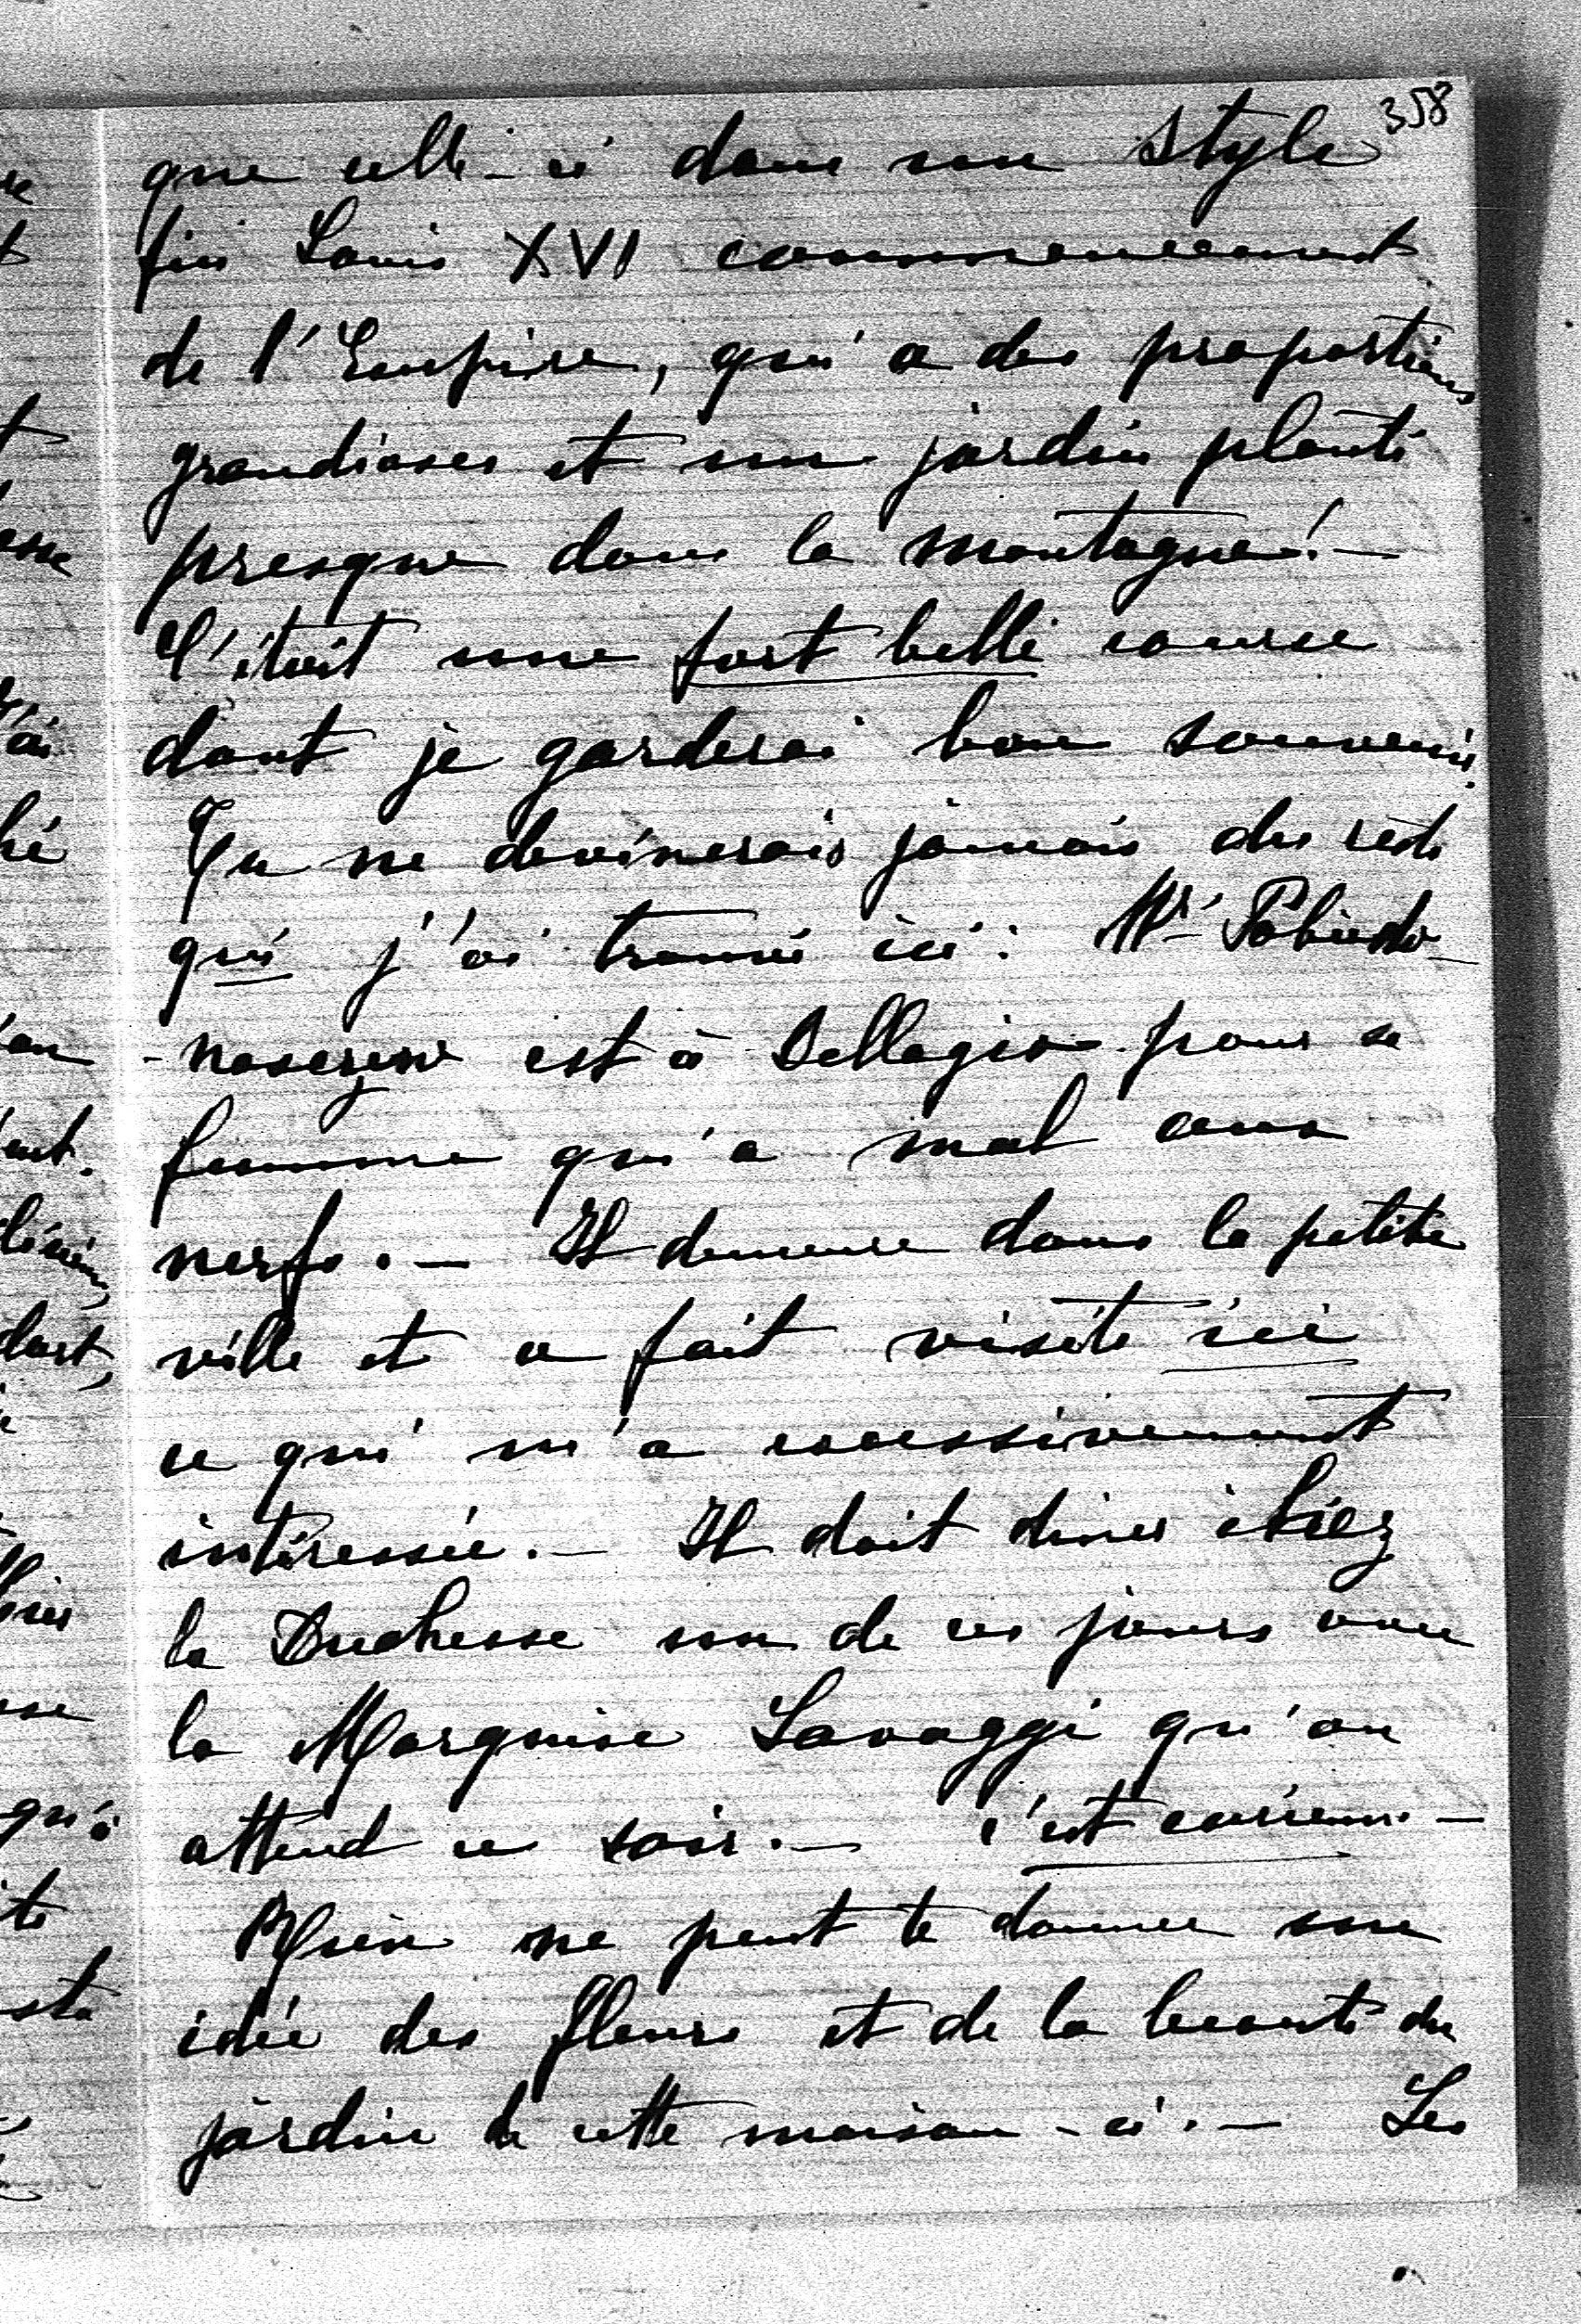 358
que celle-ci dans son style
fin Louis XVI commencement
de l'Empire, qui a des proportions
grandioses et un jardin planté
presque dans la montagne! —
C'était une fort belle course
dont je garderai bon souvenir.
Tu ne devinerais jamais du reste
qui j'ai trouvé ici: Mr Pobiedo-
-noszew est à Bellagio pour sa
femme qui a mal aux
nerfs. — Il demeure dans la petite
ville et a fait visite ici
ce qui m'a excessivement
intéressée. — Il doit diner chez
la Duchesse un de ces jours avec
la Marquise Lavaggi qu'on
attend ce soir. — C'est curieux —
Rien ne peut te donner une
idée des fleurs et de la beauté du
jardin de cette maison-ci. — Les